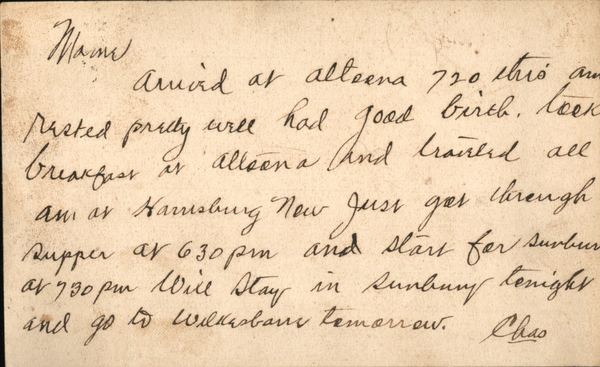 Mame
Arrived at altoona 720 this am
rested pretty well had good birth. took
breakfast at altoona and traveled all
am at Harrisburg Now Just got through
supper at 630 pm and start for sunbury
at 730 pm Will stay in sunbury tonight
and go to Wilkesbarre tomorrow.
Chas